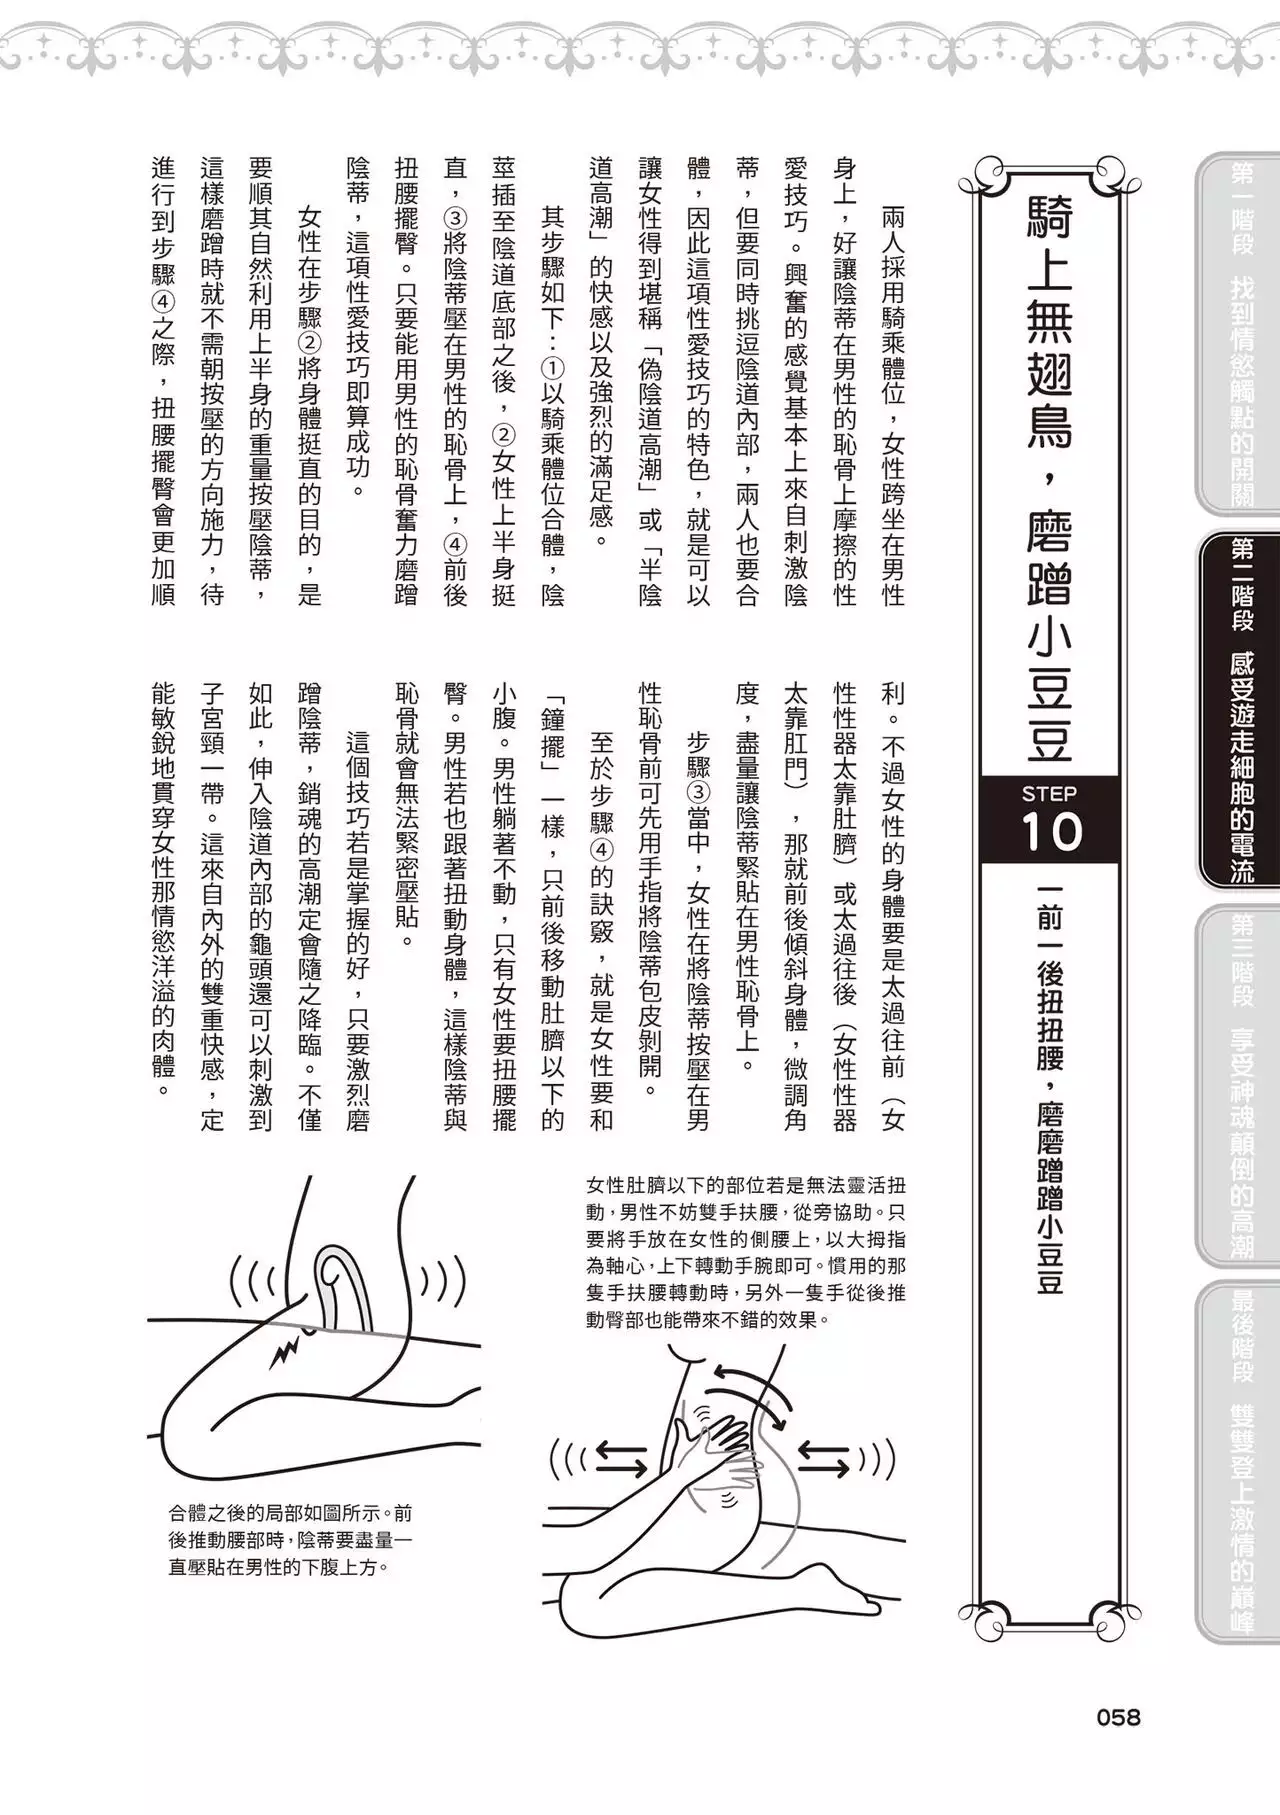 第一階段　找到情慾觸點的開關
第二階段　感受遊走細胞的電流
第三階段　享受神魂顛倒的高潮
最後階段　雙雙登上激情的巔峰
騎上無翅鳥，磨蹭小豆豆
STEP
10
一前一後扭扭腰，磨磨蹭蹭小豆豆
兩人採用騎乘體位，女性跨坐在男性
身上，好讓陰蒂在男性的恥骨上摩擦的性
愛技巧。興奮的感覺基本上來自刺激陰
蒂，但要同時挑逗陰道內部，兩人也要合
體，因此這項性愛技巧的特色，就是可以
讓女性得到堪稱「偽陰道高潮」或「半陰
道高潮」的快感以及強烈的滿足感。
其步驟如下：①以騎乘體位合體，陰
莖插至陰道底部之後，②女性上半身挺
直，③將陰蒂壓在男性的恥骨上，④前後
扭腰擺臀。只要能用男性的恥骨奮力磨蹭
陰蒂，這項性愛技巧即算成功。
女性在步驟②將身體挺直的目的，是
要順其自然利用上半身的重量按壓陰蒂，
這樣磨蹭時就不需朝按壓的方向施力，待
進行到步驟④之際，扭腰擺臀會更加順
利。不過女性的身體要是太過往前（女
性性器太靠肚臍）或太過往後（女性性器
太靠肛門），那就前後傾斜身體，微調角
度，盡量讓陰蒂緊貼在男性恥骨上。
步驟③當中，女性在將陰蒂按壓在男
性恥骨前可先用手指將陰蒂包皮剝開。
至於步驟④的訣竅，就是女性要和
「鐘擺」一樣，只前後移動肚臍以下的
小腹。男性躺著不動，只有女性要扭腰擺
臀。男性若也跟著扭動身體，這樣陰蒂與
恥骨就會無法緊密壓貼。
這個技巧若是掌握的好，只要激烈磨
蹭陰蒂，銷魂的高潮定會隨之降臨。不僅
如此，伸入陰道內部的龜頭還可以刺激到
子宮頸一帶。這來自內外的雙重快感，定
能敏銳地貫穿女性那情慾洋溢的肉體。
女性肚臍以下的部位若是無法靈活扭
動，男性不妨雙手扶腰，從旁協助。只
要將手放在女性的側腰上，以大拇指
為軸心，上下轉動手腕即可。慣用的那
隻手扶腰轉動時，另外一隻手從後推
動臀部也能帶來不錯的效果。
合體之後的局部如圖所示。前
後推動腰部時，陰蒂要盡量一
直壓貼在男性的下腹上方。
058